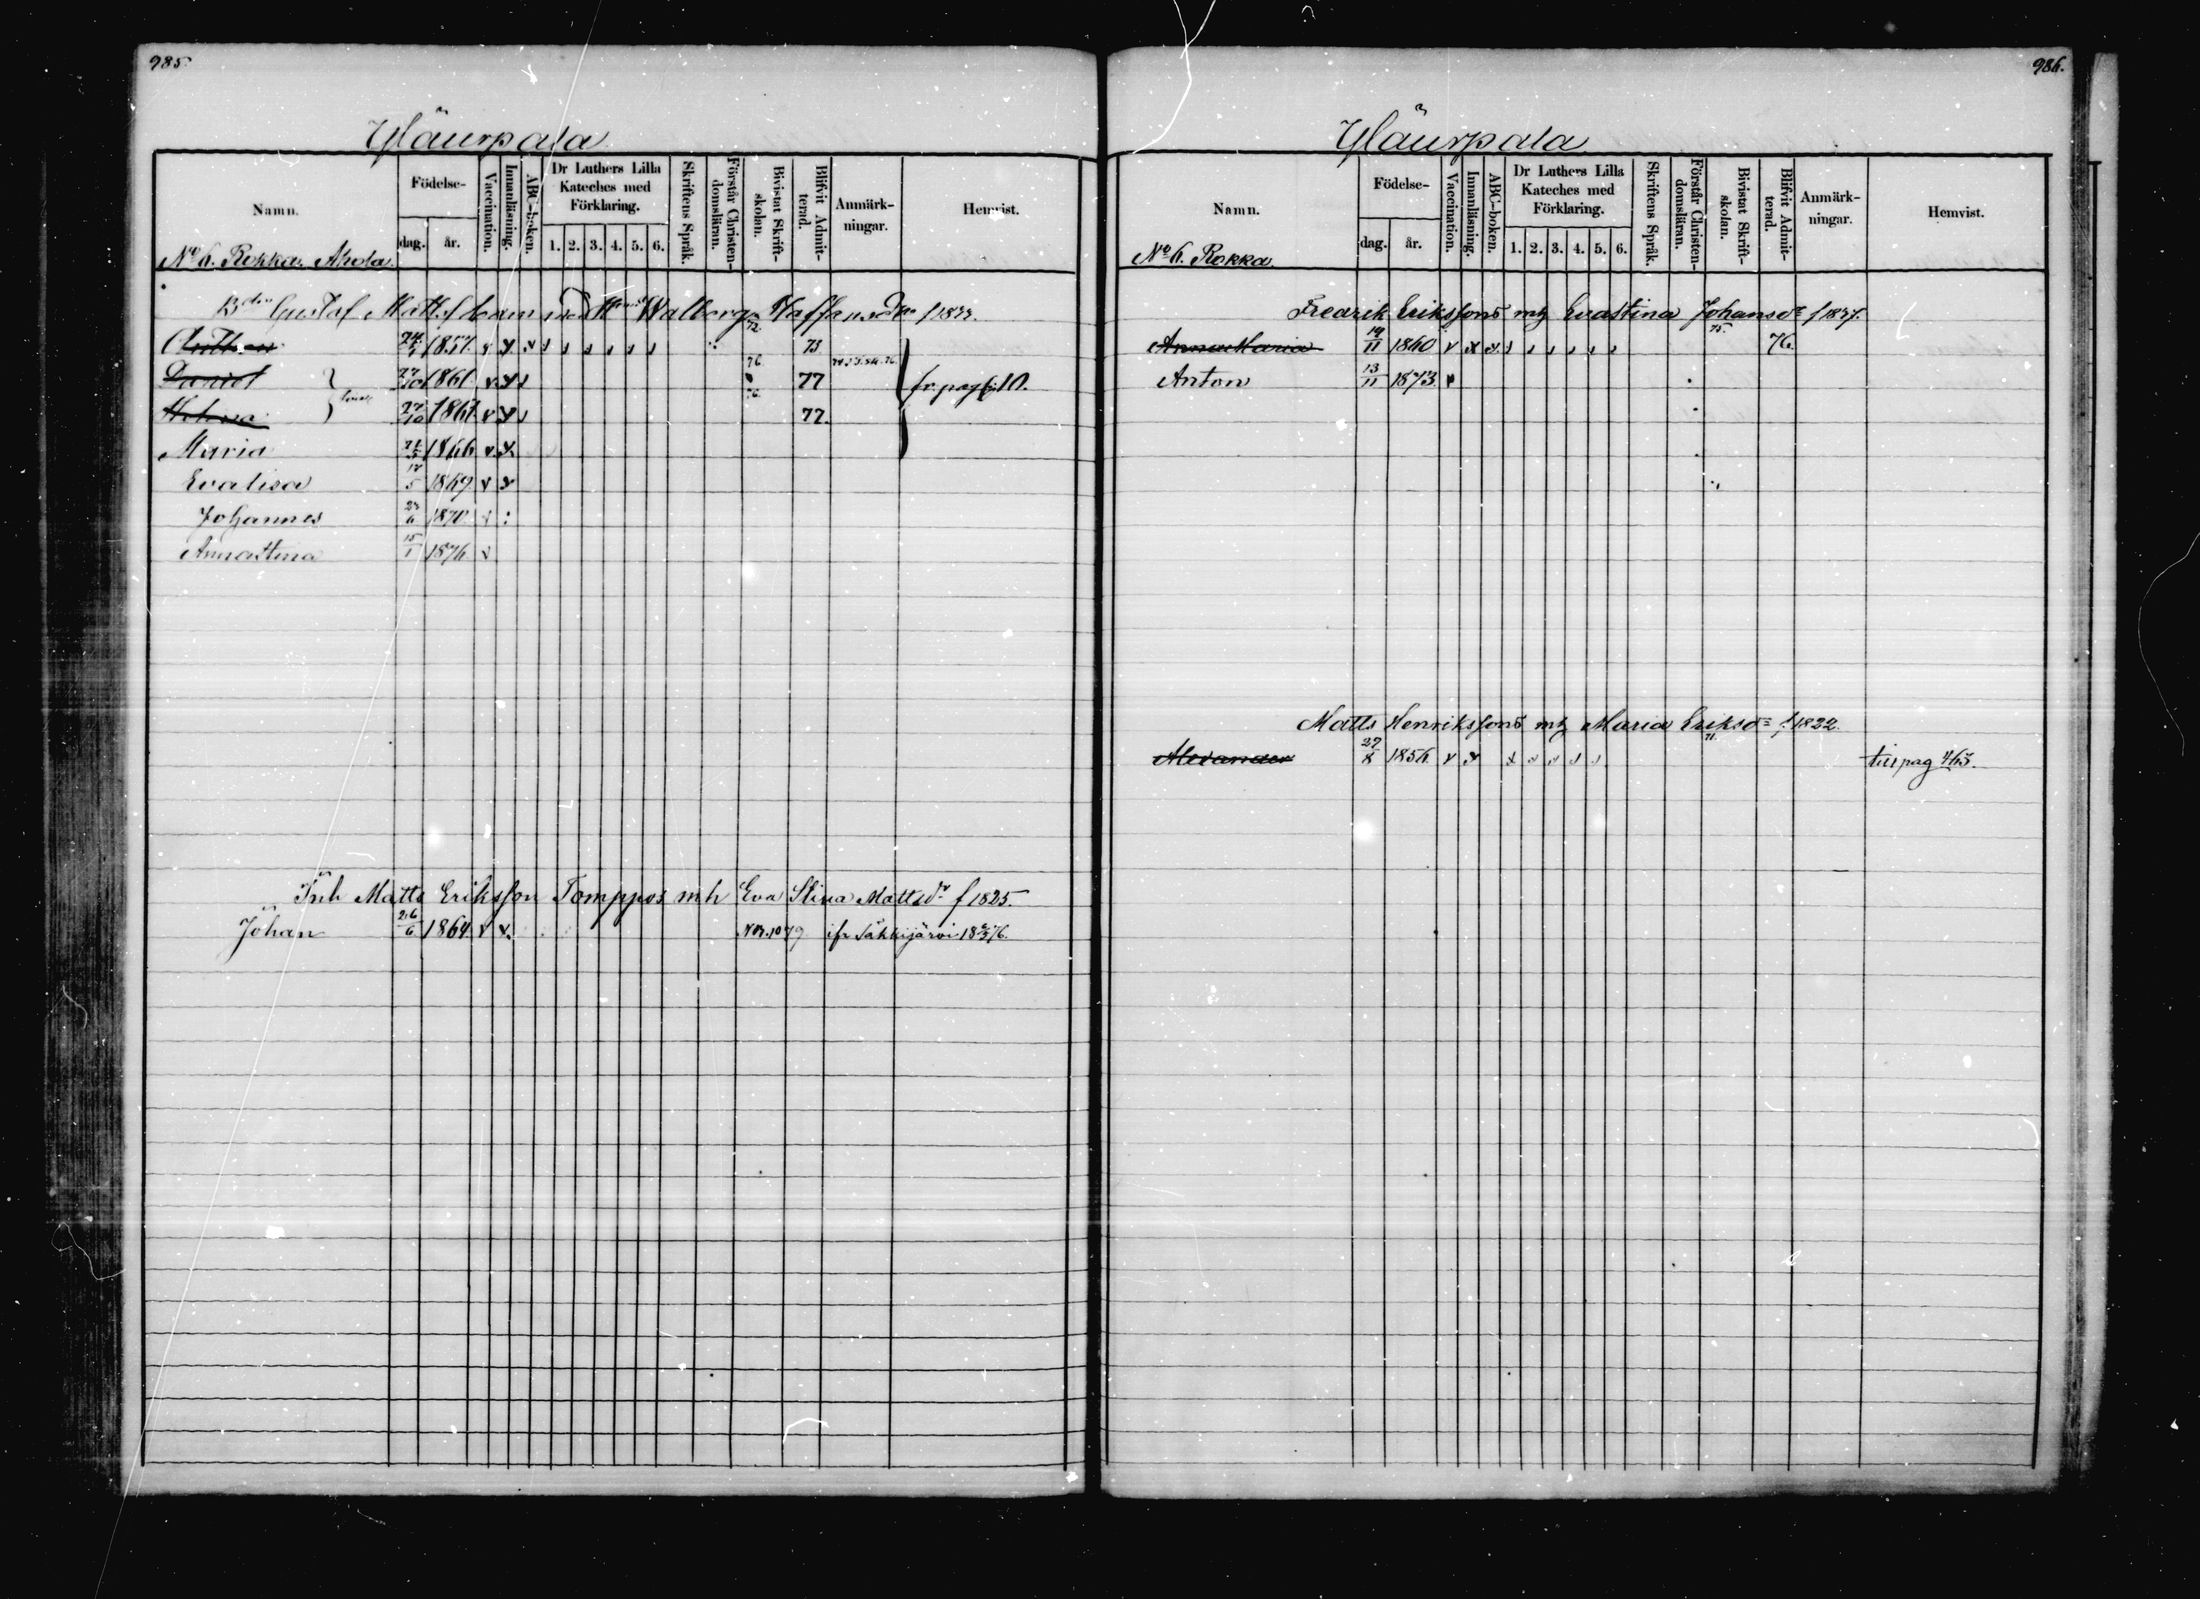 985.
Yläurpala
Namn.
Födelse-
dag. år.
Vaccination.
Innanläsning.
ABC-boken.
Dr Luthers Lilla Kateches med Förklaring.
1. 2. 3. 4. 5. 6.
Skriftens Språk.
Förstår Christen-domsläran.
Bivistat Skrift-skolan.
Blifvit Admit-terad.
Anmärk-ningar.
Hemvist.
No 6. Rokka. Ahola
Gustaf Matts barn med Walborg Staffansdr f 1833.
72
1857. 73
76
Daniel 27/10 1861. 77 fr. pag 610.
76.
27/10 1861 77.
Maria 1866
Evalisa 17/5 1869
Johannes 23/6 1870
Annastina 15/1 1876
Inh Matts Eriksson Tomppos mh Eva Stina Mattsdr f 1825.
Johan 26/6 1864 ifr Säkkijärvi 18 76.
986.
Yläurpala
Namn.
Födelse-
dag. år.
Vaccination.
Innanläsning.
ABC-boken.
Dr Luthers Lilla Kateches med Förklaring.
1. 2. 3. 4. 5. 6.
Skriftens Språk.
Förstår Christen-domsläran.
Bivistat Skrift-skolan.
Blifvit Admit-terad.
Anmärk-ningar.
Hemvist.
No 6. Rokka.
Fredrik Erikssons mh Evastina Johansdr f 1837.
75.
Anna Maria 19/11 1860 76.
Anton 13/11 1873.
Matts Henrikssons mh Maria Eriksdr f 1822.
71.
Alexander 27/8 1856. till pag 463.